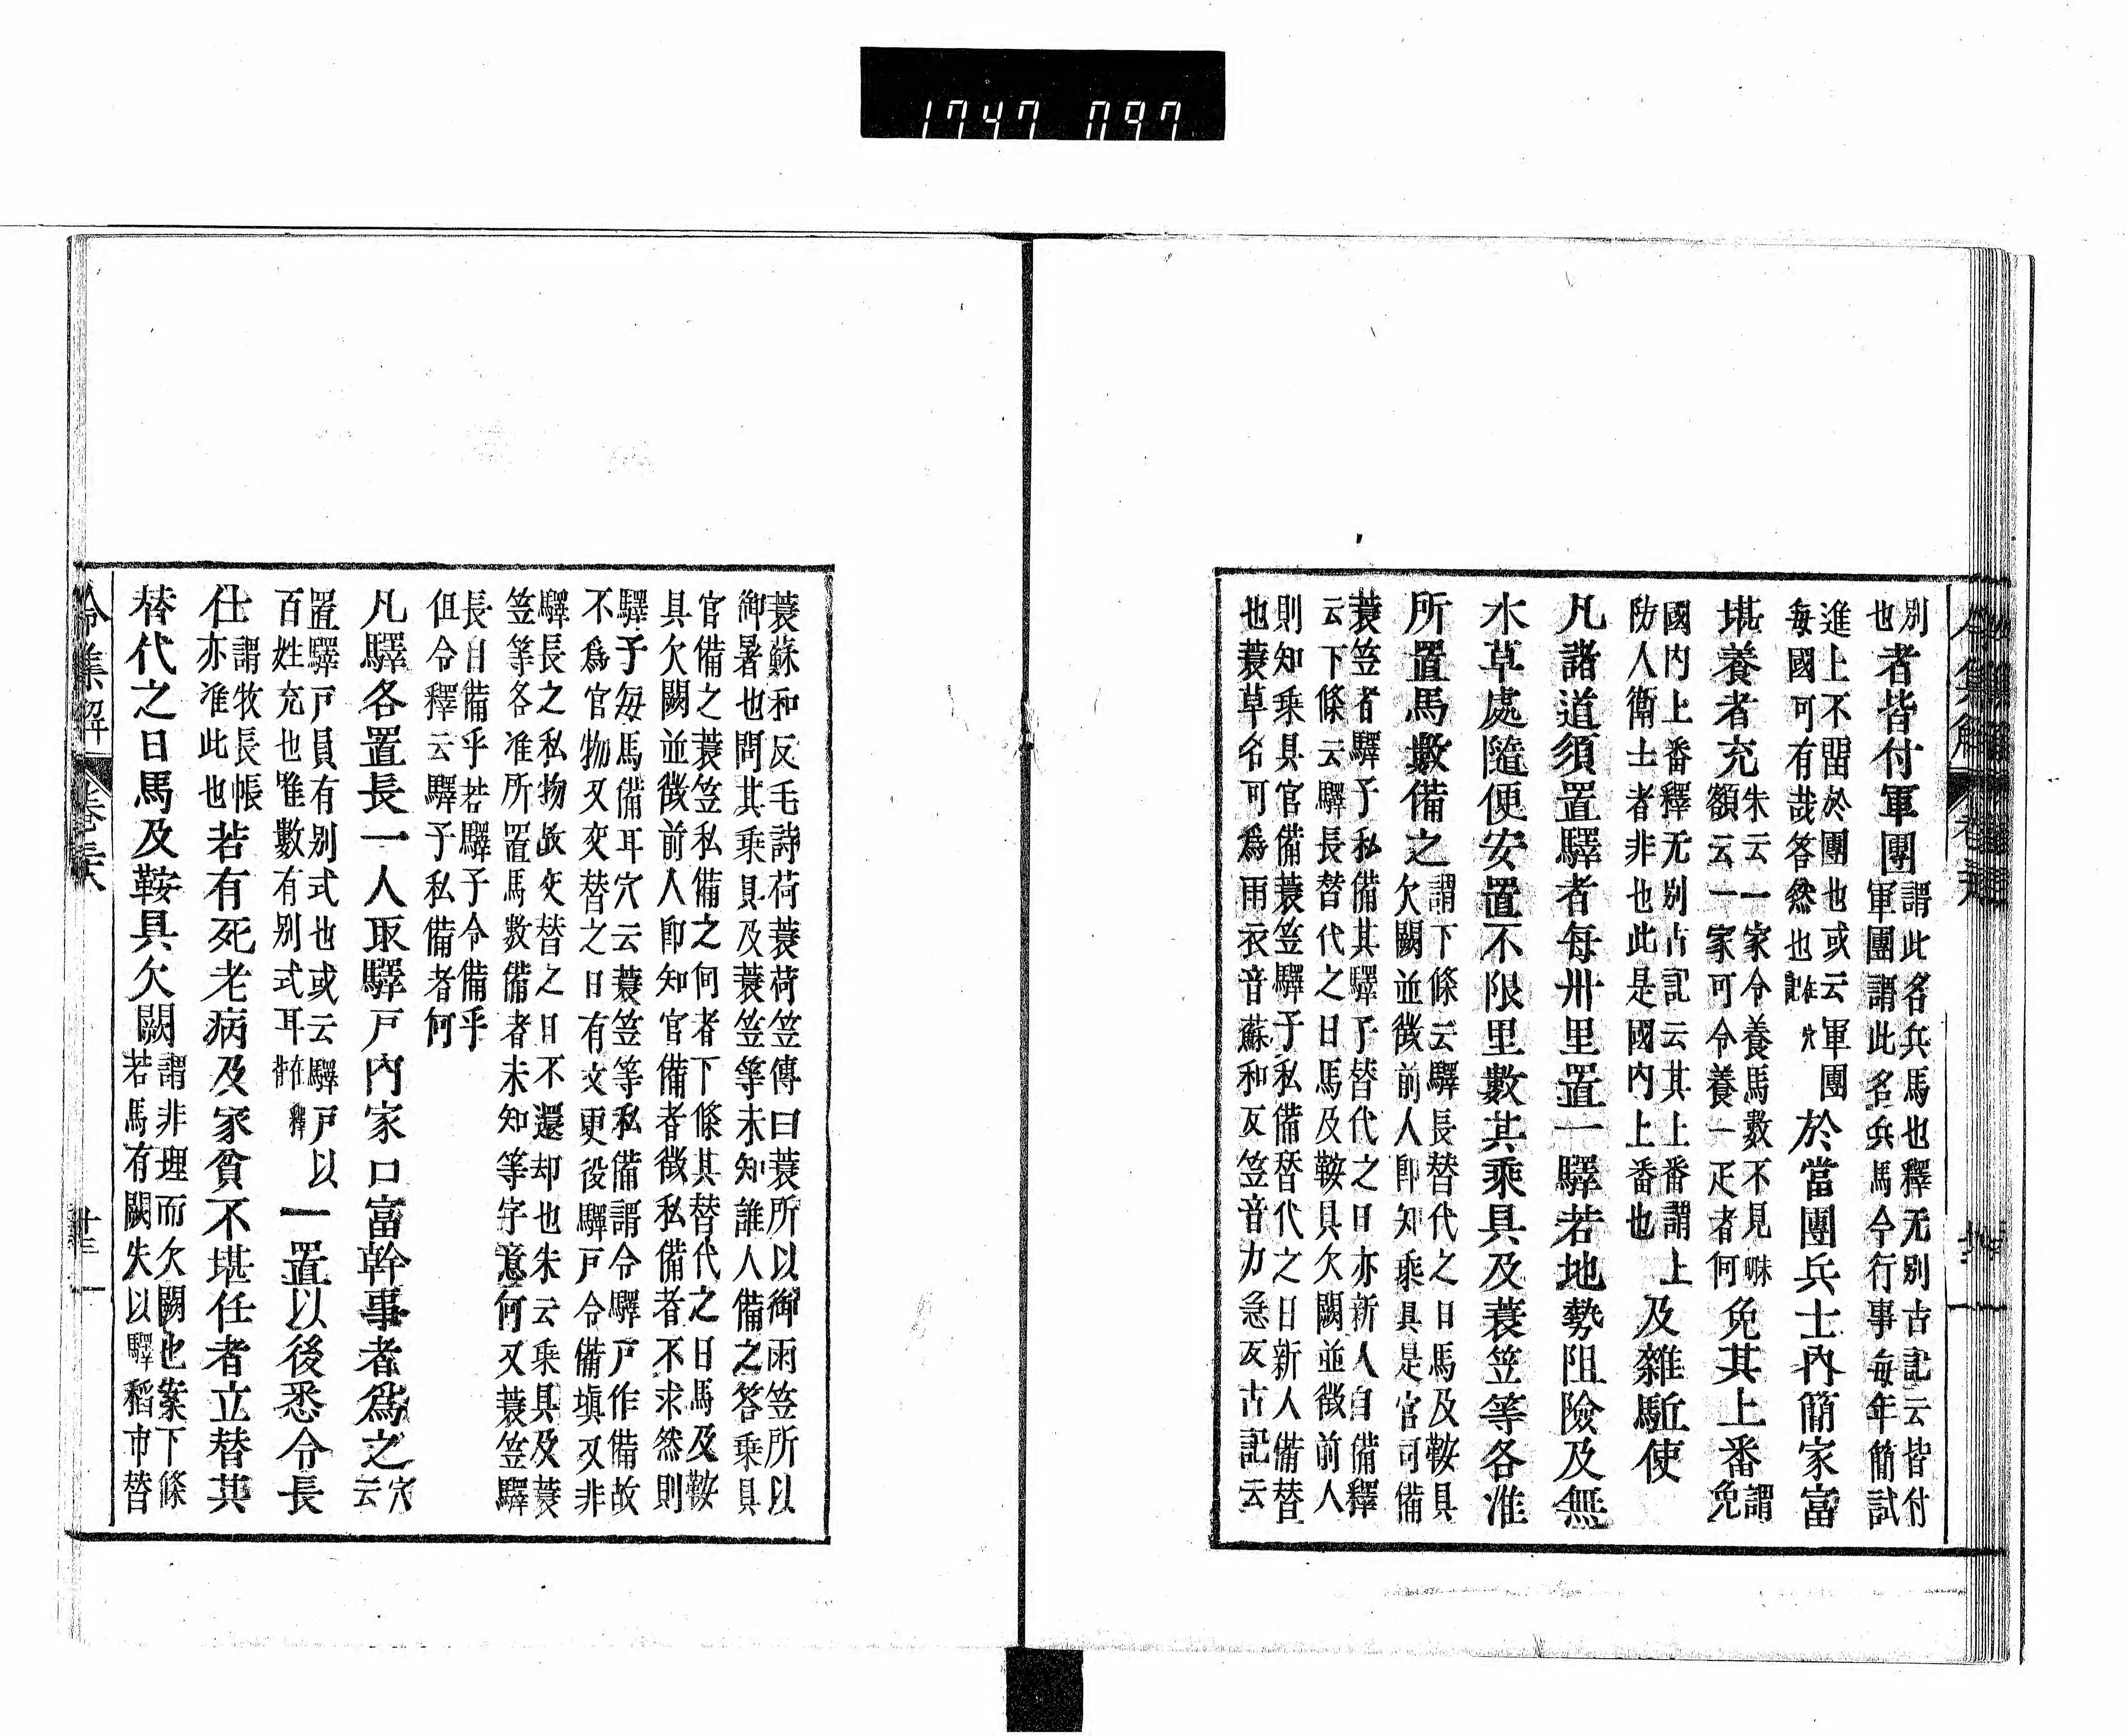 1747 097
別
也者皆付軍團謂此名兵馬也釋无別古記云皆付
軍團謂此名兵馬令行事每年簡試
進上不留於團也或云軍團
每國可有哉答然也在穴記於當團兵士內簡家富
堪養者充朱云一家令養馬數不見㖼
額云一家可令養一疋者何免其上番謂
免
國內上番釋无別古記云其上番謂上
防人衛士者非也此是國內上番也及雜駈使
凡諸道須置驛者每卅里置一驛若地勢阻險及無
水草處隨便安置不限里數其乘具及蓑笠等各准
所置馬數備之謂下條云驛長替代之日馬及鞍具
欠闕並徵前人卽知乘具是官可備
蓑笠者驛子私備其驛子替代之日亦新人自備釋
云下條云驛長替代之日馬及鞍具欠闕並徵前人
則知乘具官備蓑笠驛子私備替代之日新人備替
也蓑草名可爲雨衣音蘇和反笠音力急反古記云
蓑蘇和反毛詩荷蓑荷笠傳曰蓑所以御雨笠所以
御暑也問其乘具及蓑笠等未知誰人備之答乘具
官備之蓑笠私備之何者下條其替代之日馬及鞍
具欠闕並徵前人卽知官備者徵私備者不求然則
驛子每馬備耳穴云蓑笠等私備謂令驛戸作備故
不爲官物又交替之日有交更役驛戸令備塡又非
驛長之私物故交替之日不還却也朱云乘具及蓑
笠等各准所置馬數備者未知等字意何又蓑笠驛
長自備乎若驛子令備乎
但令釋云驛子私備者何
凡驛各置長一人取驛戸內家口富幹事者爲之穴
云
置驛戸員有別式也或云驛戸以
百姓充也唯數有別式耳在釋背一置以後悉令長
仕謂牧長帳
亦准此也若有死老病及家貧不堪任者立替其
替代之日馬及鞍具欠闕謂非理而欠闕也案下條
若馬有闕失以驛稻市替
令集解 卷卅六 卅二